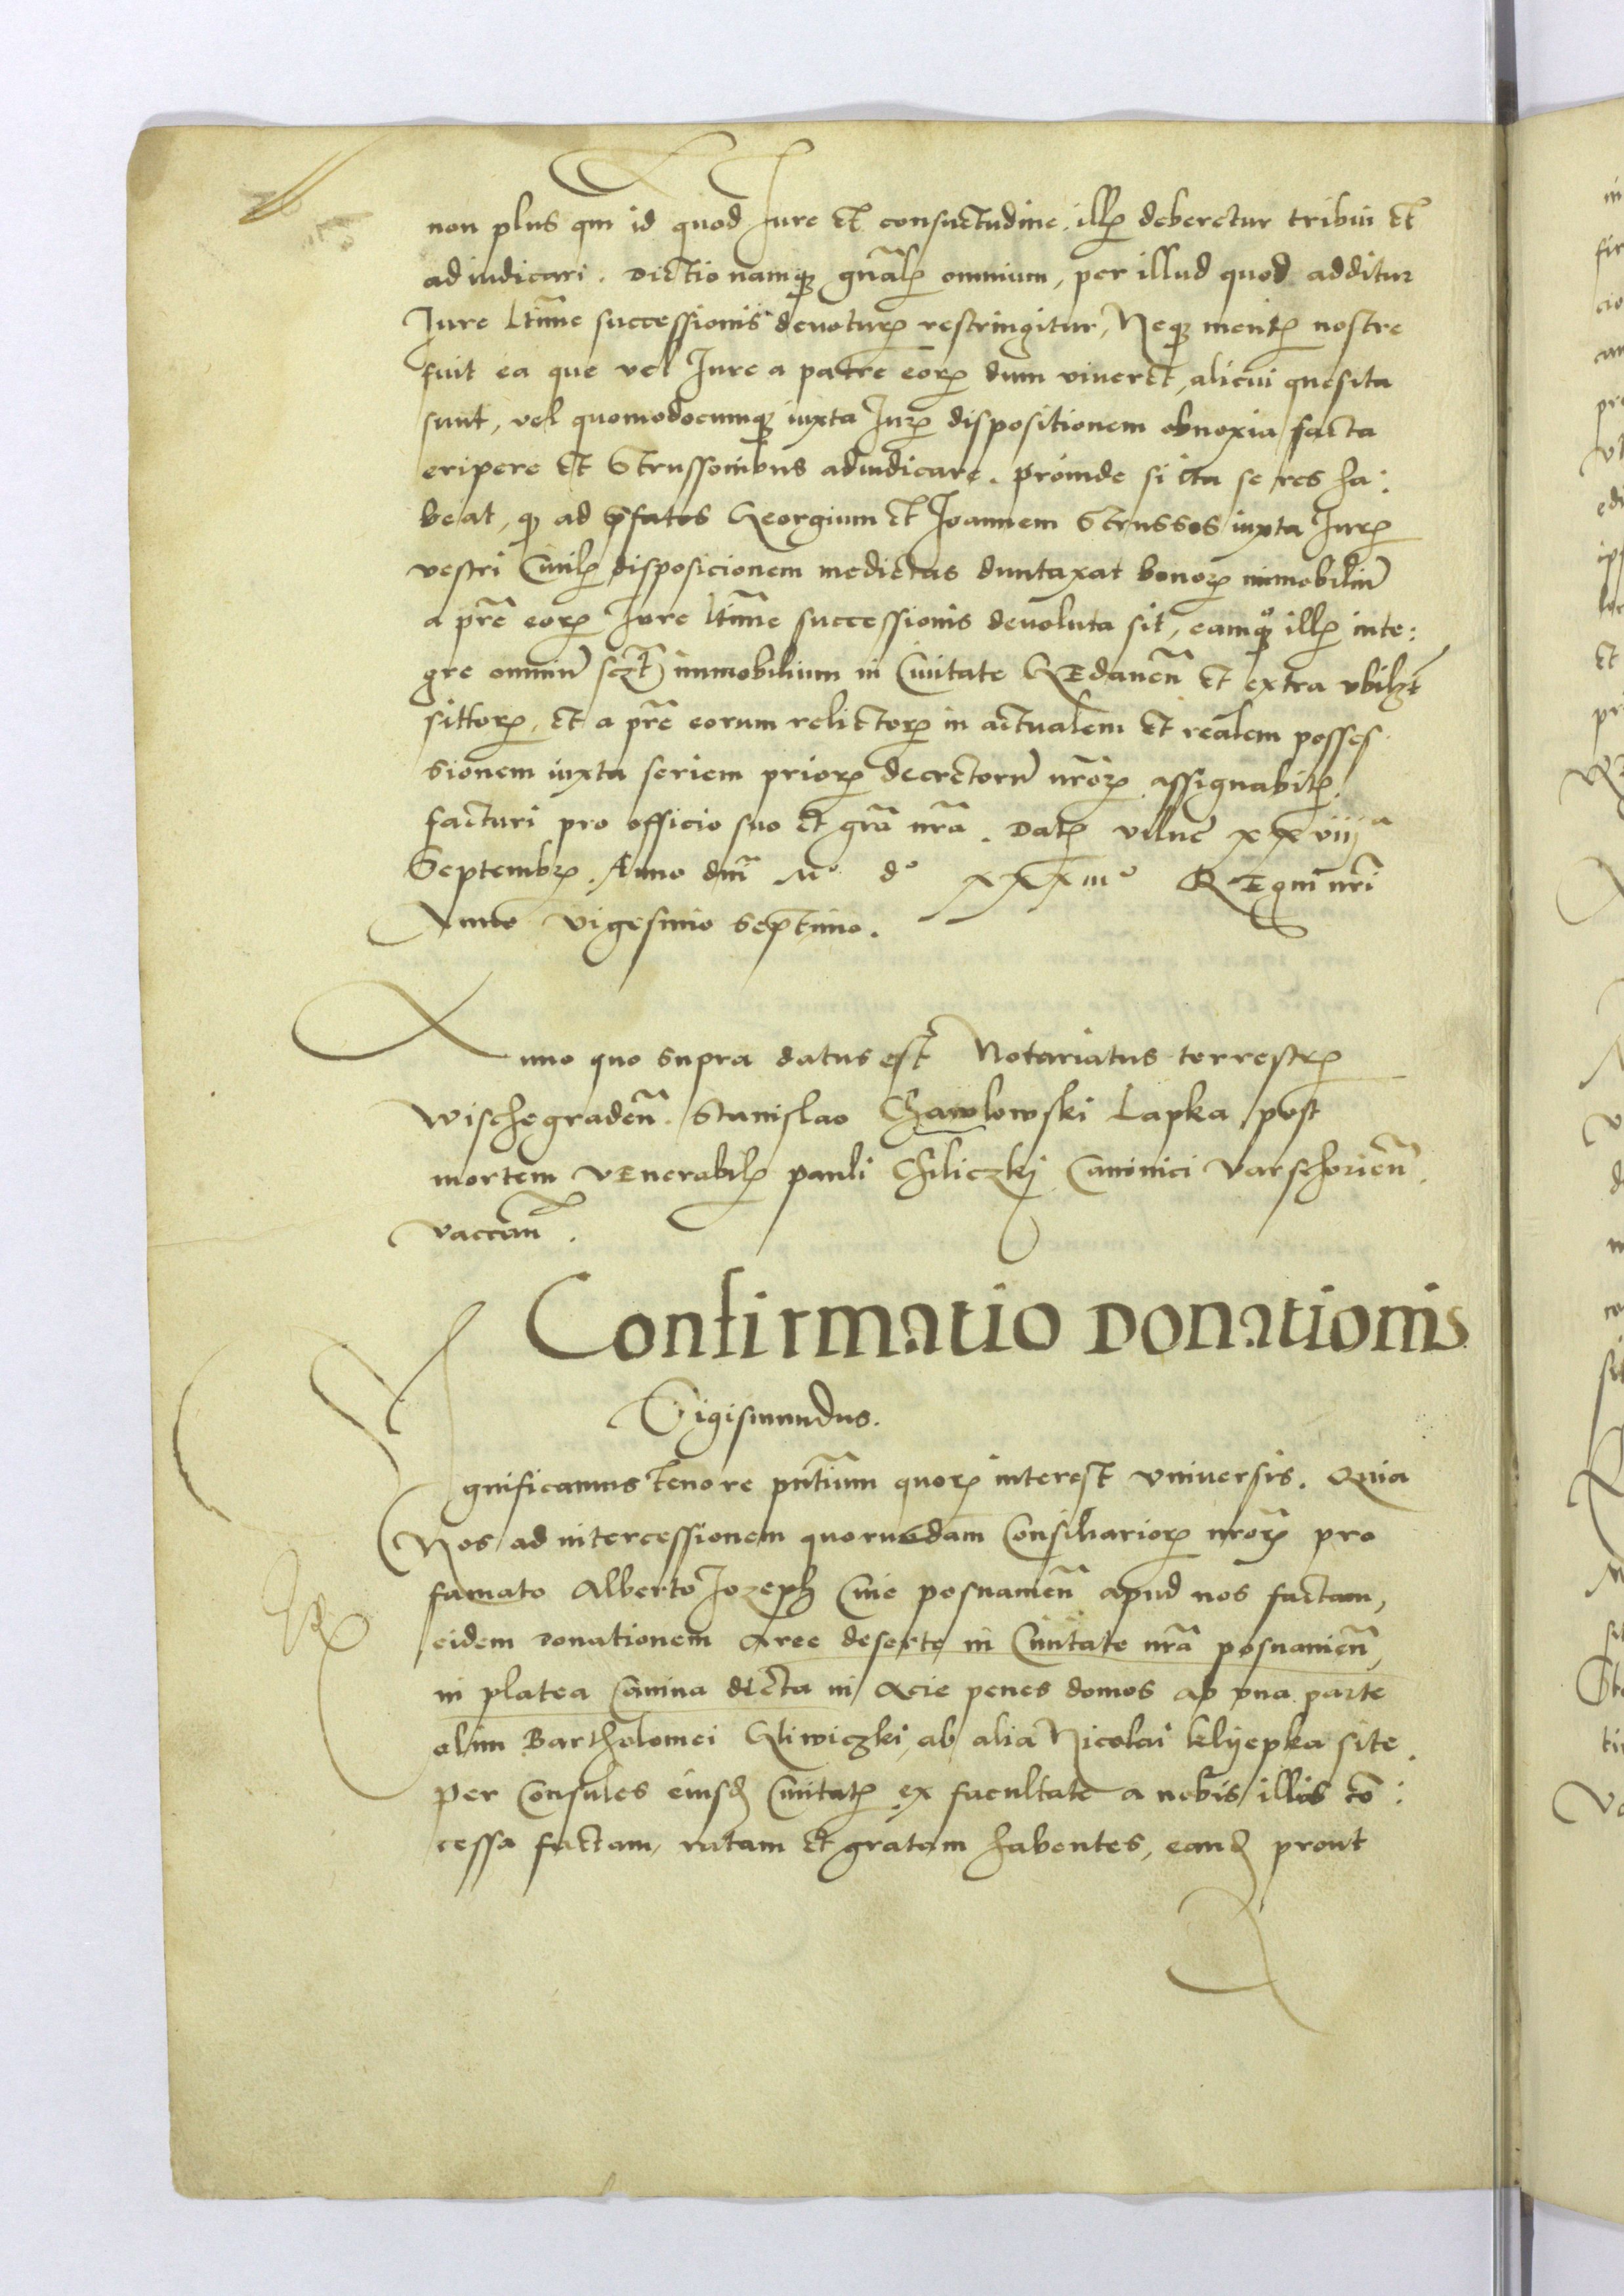 non plus qm id quod Jure et consuetudine illꝭ deberetur tribui et
adiudicari. Dictio namqꝫ gnãlꝭ omnium, per illud quod additur
Jure ltime successionis deuoturꝝ restringitur, Neqꝫ mentꝭ nostre
fuit ea que vel Jure a patre eorꝝ dum viueret, alicui quesita
sunt, vel quomodocumqꝫ iuxta Jurꝭ dispositionem obnoxia facta
eripere et Strussonibus adiudicare. proinde si ita se res ha:
beat, qꝫ ad p̃fatos Georgium et Joannem Strussos iuxta Jurꝭ
vestri Ciuilꝭ disposicionem medietas duntaxat bonorꝝ immobiliũ
a pr̃e eorꝝ Jure ltime successionis deuoluta sit, eamqꝫ illꝭ inte:
gre omniũ sczt immobilium in Ciuitate GEdanen̄ et extra vbilzt
sittorꝝ, et a pr̃e eorum relictorꝝ in actualem et realem posses
sionem iuxta seriem priorꝝ decretorũ nr̃orꝝ assignabitꝭ.
facturi pro officio suo et gr̃a nr̃a. Datꝭ vilne xxviiij a
Septembrꝭ. Anno dni Mº dº xxxiiiº REgni nr̃i
Anno vigesimo septimo.
Anno quo supra datus est Notariatus terrestrꝭ
Wischegraden̄. Stanislao Chawlowski Lapka post
mortem vEnerabilꝭ pauli Chiliczkij Canonici varschouien̄.
vaccan̄.
Confirmatio Donationis
Sigismundus.
Significamus tenore pñtium quorꝝ interest vniuersis. Quia
Nos ad intercessionem quorundam Consiliariorꝝ nr̃orꝝ pro
famato Alberto Jozeph Ciue posnanien̄ apud nos factam,
eidem donationem aree deserte in Ciuitate nr̃a posnanien̄,
in platea Canina dicta in acie penes domos ab vna parte
olim Bartholomei Gliwiczki, ab alia Nicolai klyepka site.
per Consules eiusd Ciuitatꝭ ex facultate a nobis illis cõ:
cessa factam, ratam et gratam habentes, eand prout